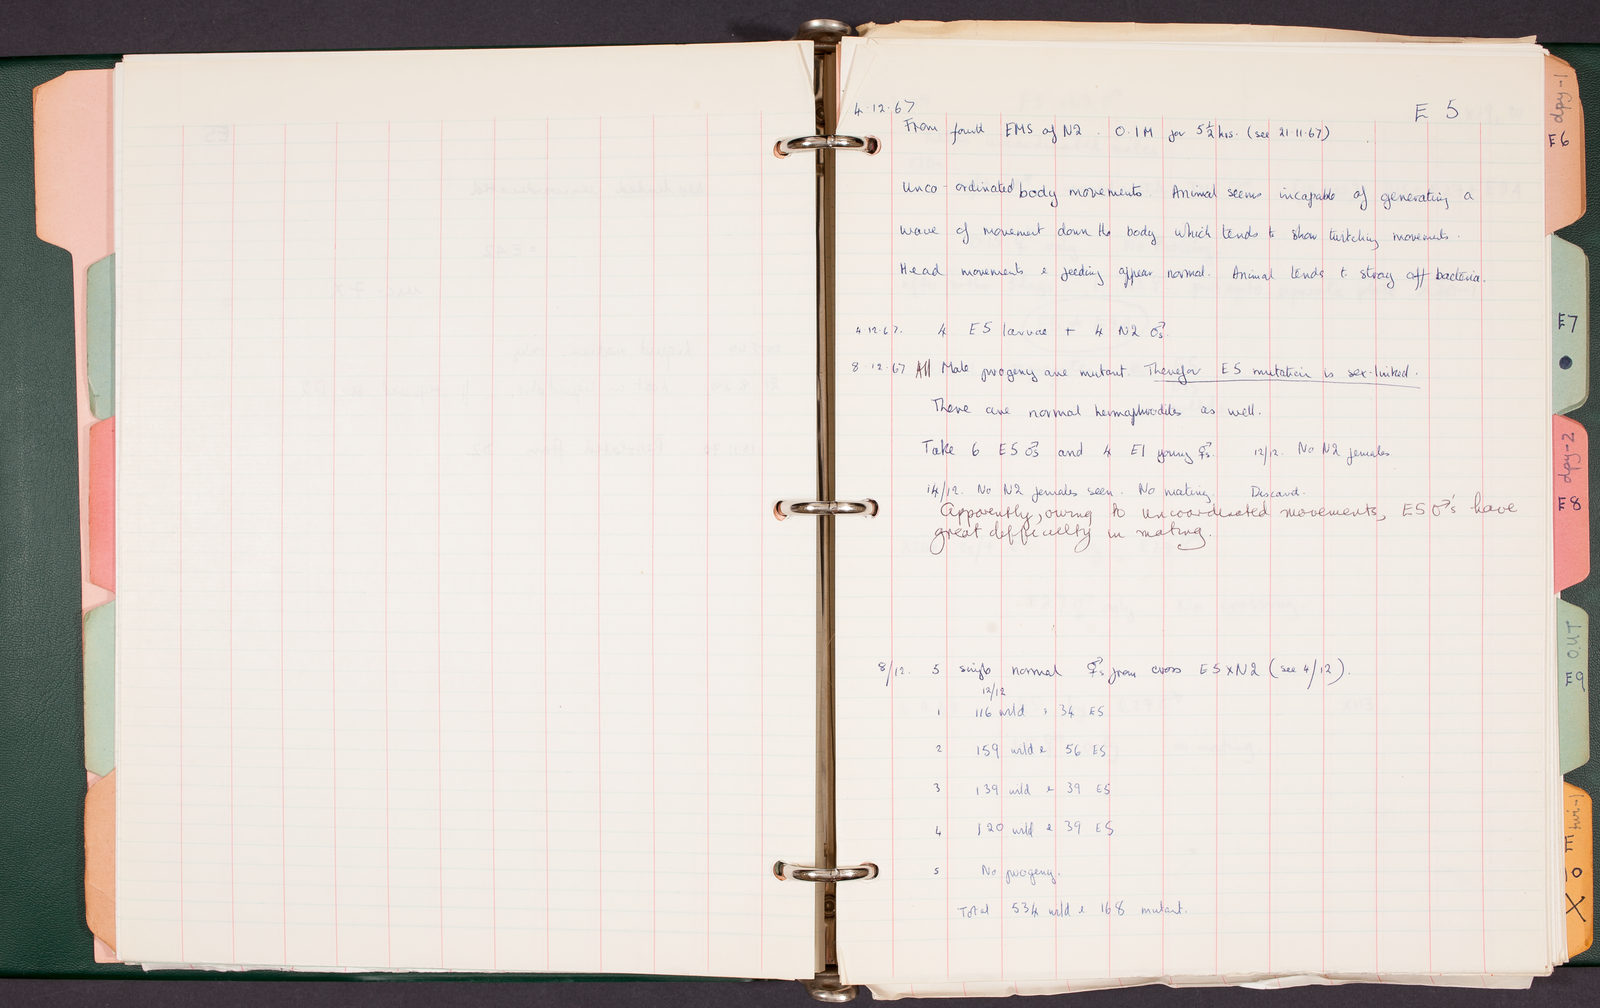 4.12.67
E 5
From fourth EMS of N2. 0.1M for 5½ hrs. (see 21.11.67)
Unco-ordinated body movements. Animal seems incapable of generating a
wave of movement down the body which tends to show twitching movements.
Head movements & feeding appear normal. Animal tends to stray off bacteria.
4.12.67. 4 E5 larvae + 4 N2 ♂s.
8.12.67 All Male progeny are mutant. Therefor E5 mutation is sex-linked.
There are normal hermaphrodites as well.
Take 6 E5 ♂s and 4 E1 young ⚥s. 12/12. No N2 females
14/12. No N2 females seen. No mating. Discard.
Apparently, owing to uncoordinated movements, E5 ♂'s have
great difficulty in mating.
8/12. 5 single normal ⚥s from cross E5xN2 (see 4/12).
12/12
1 116 wild & 34 E5
2 159 wild & 56 E5
3 139 wild & 39 E5
4 120 wild & 39 E5
5 No progeny.
Total 534 wild & 168 mutant.
dpy-1
E6
E7
dpy-2
E8
OUT
E9
twi-1
E
10
X